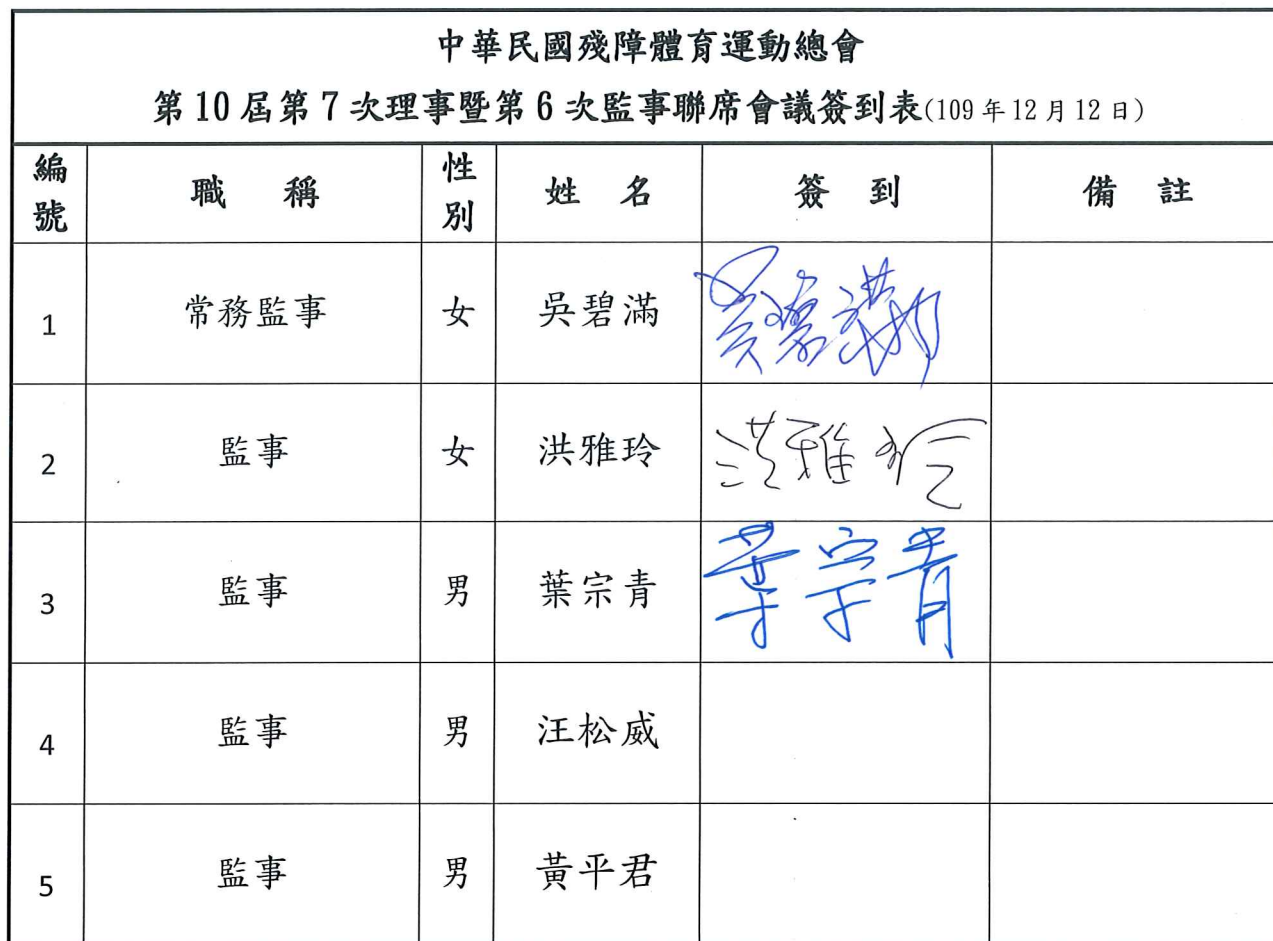 中華民國殘障體育運動總會
第10屆第7次理事暨第6次監事聯席會議簽到表(109年12月12日)
編號 職稱 性別 姓名 簽到 備註
1 常務監事 女 吳碧滿 吳碧滿
2 監事 女 洪雅玲 洪雅玲
3 監事 男 葉宗青 葉宗青
4 監事 男 汪松威
5 監事 男 黃平君